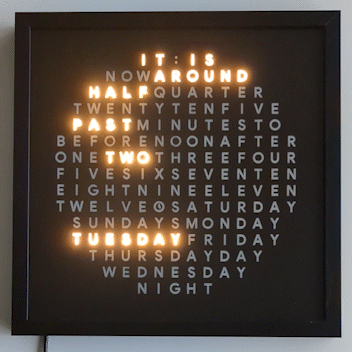 IT:IS
NOWAROUND
HALFQUARTER
TWENTYTENFIVE
PASTMINUTESTO
BEFORENOONAFTER
ONETWOTHREEFOUR
FIVESIXSEVENTEN
EIGHTNINEELEVEN
TWELVE SATURDAY
SUNDAYSMONDAY
TUESDAYFRIDAY
THURSDAYDAY
WEDNESDAY
NIGHT